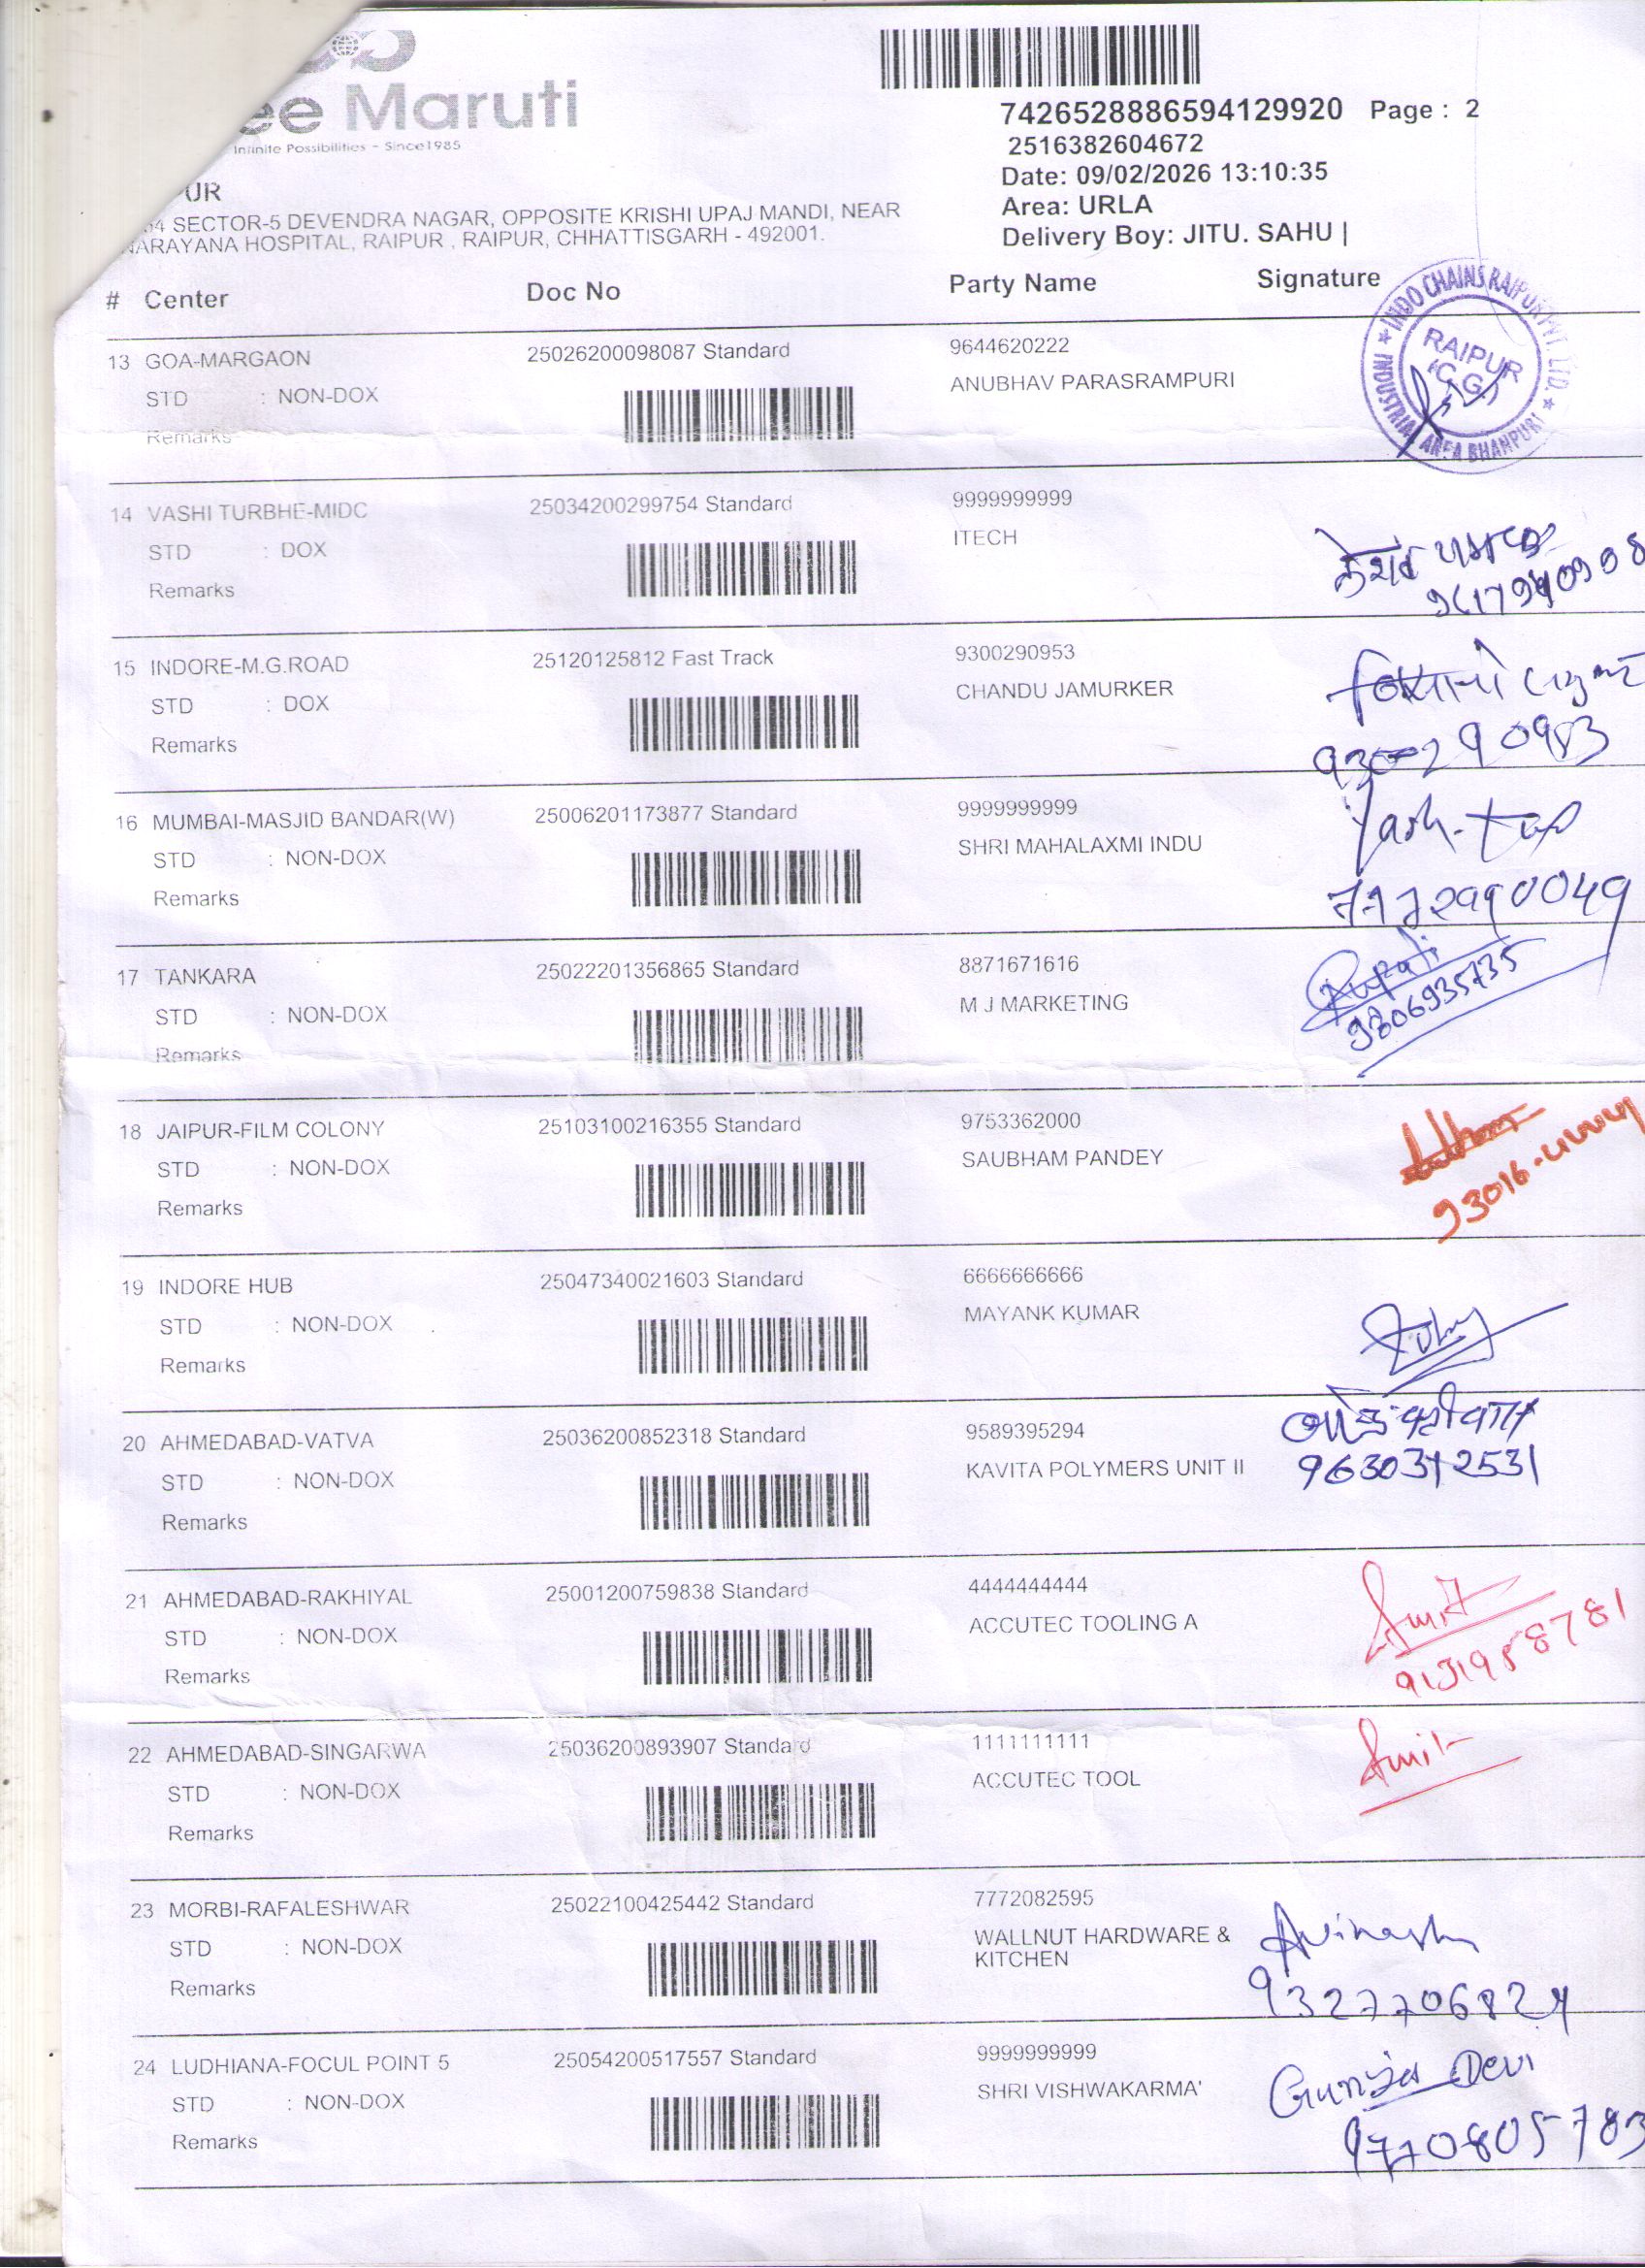 ee Maruti
Infinite Possibilities - Since1985
7426528886594129920 Page : 2
2516382604672
Date: 09/02/2026 13:10:35
Area: URLA
Delivery Boy: JITU. SAHU |
PUR
SECTOR-5 DEVENDRA NAGAR, OPPOSITE KRISHI UPAJ MANDI, NEAR
NARAYANA HOSPITAL, RAIPUR , RAIPUR, CHHATTISGARH - 492001.
# Center Doc No Party Name Signature
INDO CHAINS RAIPUR PVT. LTD.
INDUSTRIAL AREA BHANPURI
RAIPUR
(C.G.)
13 GOA-MARGAON 25026200098087 Standard 9644620222
STD : NON-DOX ANUBHAV PARASRAMPURI
Remarks
14 VASHI TURBHE-MIDC 25034200299754 Standard 9999999999
STD : DOX ITECH
Remarks
15 INDORE-M.G.ROAD 25120125812 Fast Track 9300290953
STD : DOX CHANDU JAMURKER
Remarks
16 MUMBAI-MASJID BANDAR(W) 25006201173877 Standard 9999999999
STD : NON-DOX SHRI MAHALAXMI INDU
Remarks
17 TANKARA 25022201356865 Standard 8871671616
STD : NON-DOX M J MARKETING
Remarks
Rupali
9806935735
18 JAIPUR-FILM COLONY 25103100216355 Standard 9753362000
STD : NON-DOX SAUBHAM PANDEY
Remarks
93016
19 INDORE HUB 25047340021603 Standard 6666666666
STD : NON-DOX MAYANK KUMAR
Remarks
20 AHMEDABAD-VATVA 25036200852318 Standard 9589395294
STD : NON-DOX KAVITA POLYMERS UNIT II
Remarks
21 AHMEDABAD-RAKHIYAL 25001200759838 Standard 4444444444
STD : NON-DOX ACCUTEC TOOLING A
Remarks
Amit
22 AHMEDABAD-SINGARWA 25036200893907 Standard 1111111111
STD : NON-DOX ACCUTEC TOOL
Remarks
Amit
23 MORBI-RAFALESHWAR 25022100425442 Standard 7772082595
STD : NON-DOX WALLNUT HARDWARE &
KITCHEN
Remarks
Avinash
9327706824
24 LUDHIANA-FOCUL POINT 5 25054200517557 Standard 9999999999
STD : NON-DOX SHRI VISHWAKARMA'
Remarks
Devi
9770805783